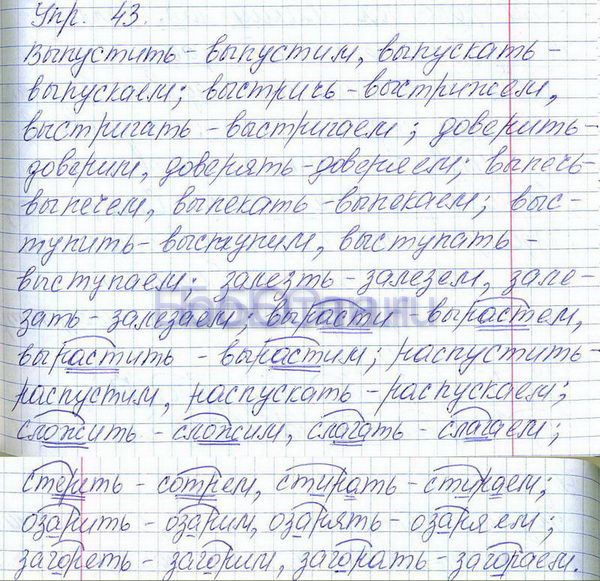 Упр. 43.
Выпустить - выпустим, выпускать -
выпускаем; выстричь - выстрижем,
выстригать - выстригаем; доверить -
доверим, доверять - доверяем; выпечь -
выпечем, выпекать - выпекаем; выс-
тупить - выступим, выступать -
выступаем; залезть - залезем, зале-
зать - залезаем; вырасти - вырастем,
вырастить - вырастим; распустить -
распустим, распускать - распускаем;
сложить - сложим, слагать - слагаем;
стереть - сотрем, стирать - стираем;
озарить - озарим, озарять - озаряем;
загореть - загорим, загорать - загораем.